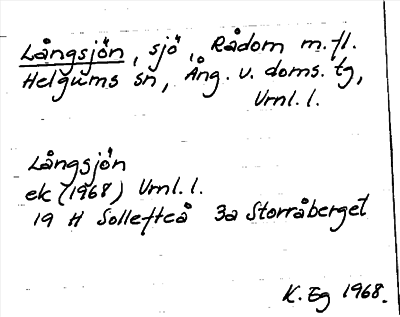 Långsjön, sjö, Rådom m.fl.
Helgums sn, Ång. v. doms. tg,
Vrnl. l.
Långsjön
ek (1968) Vrnl. l.
19 H Sollefteå 3a Storråberget
K. Eg 1968.